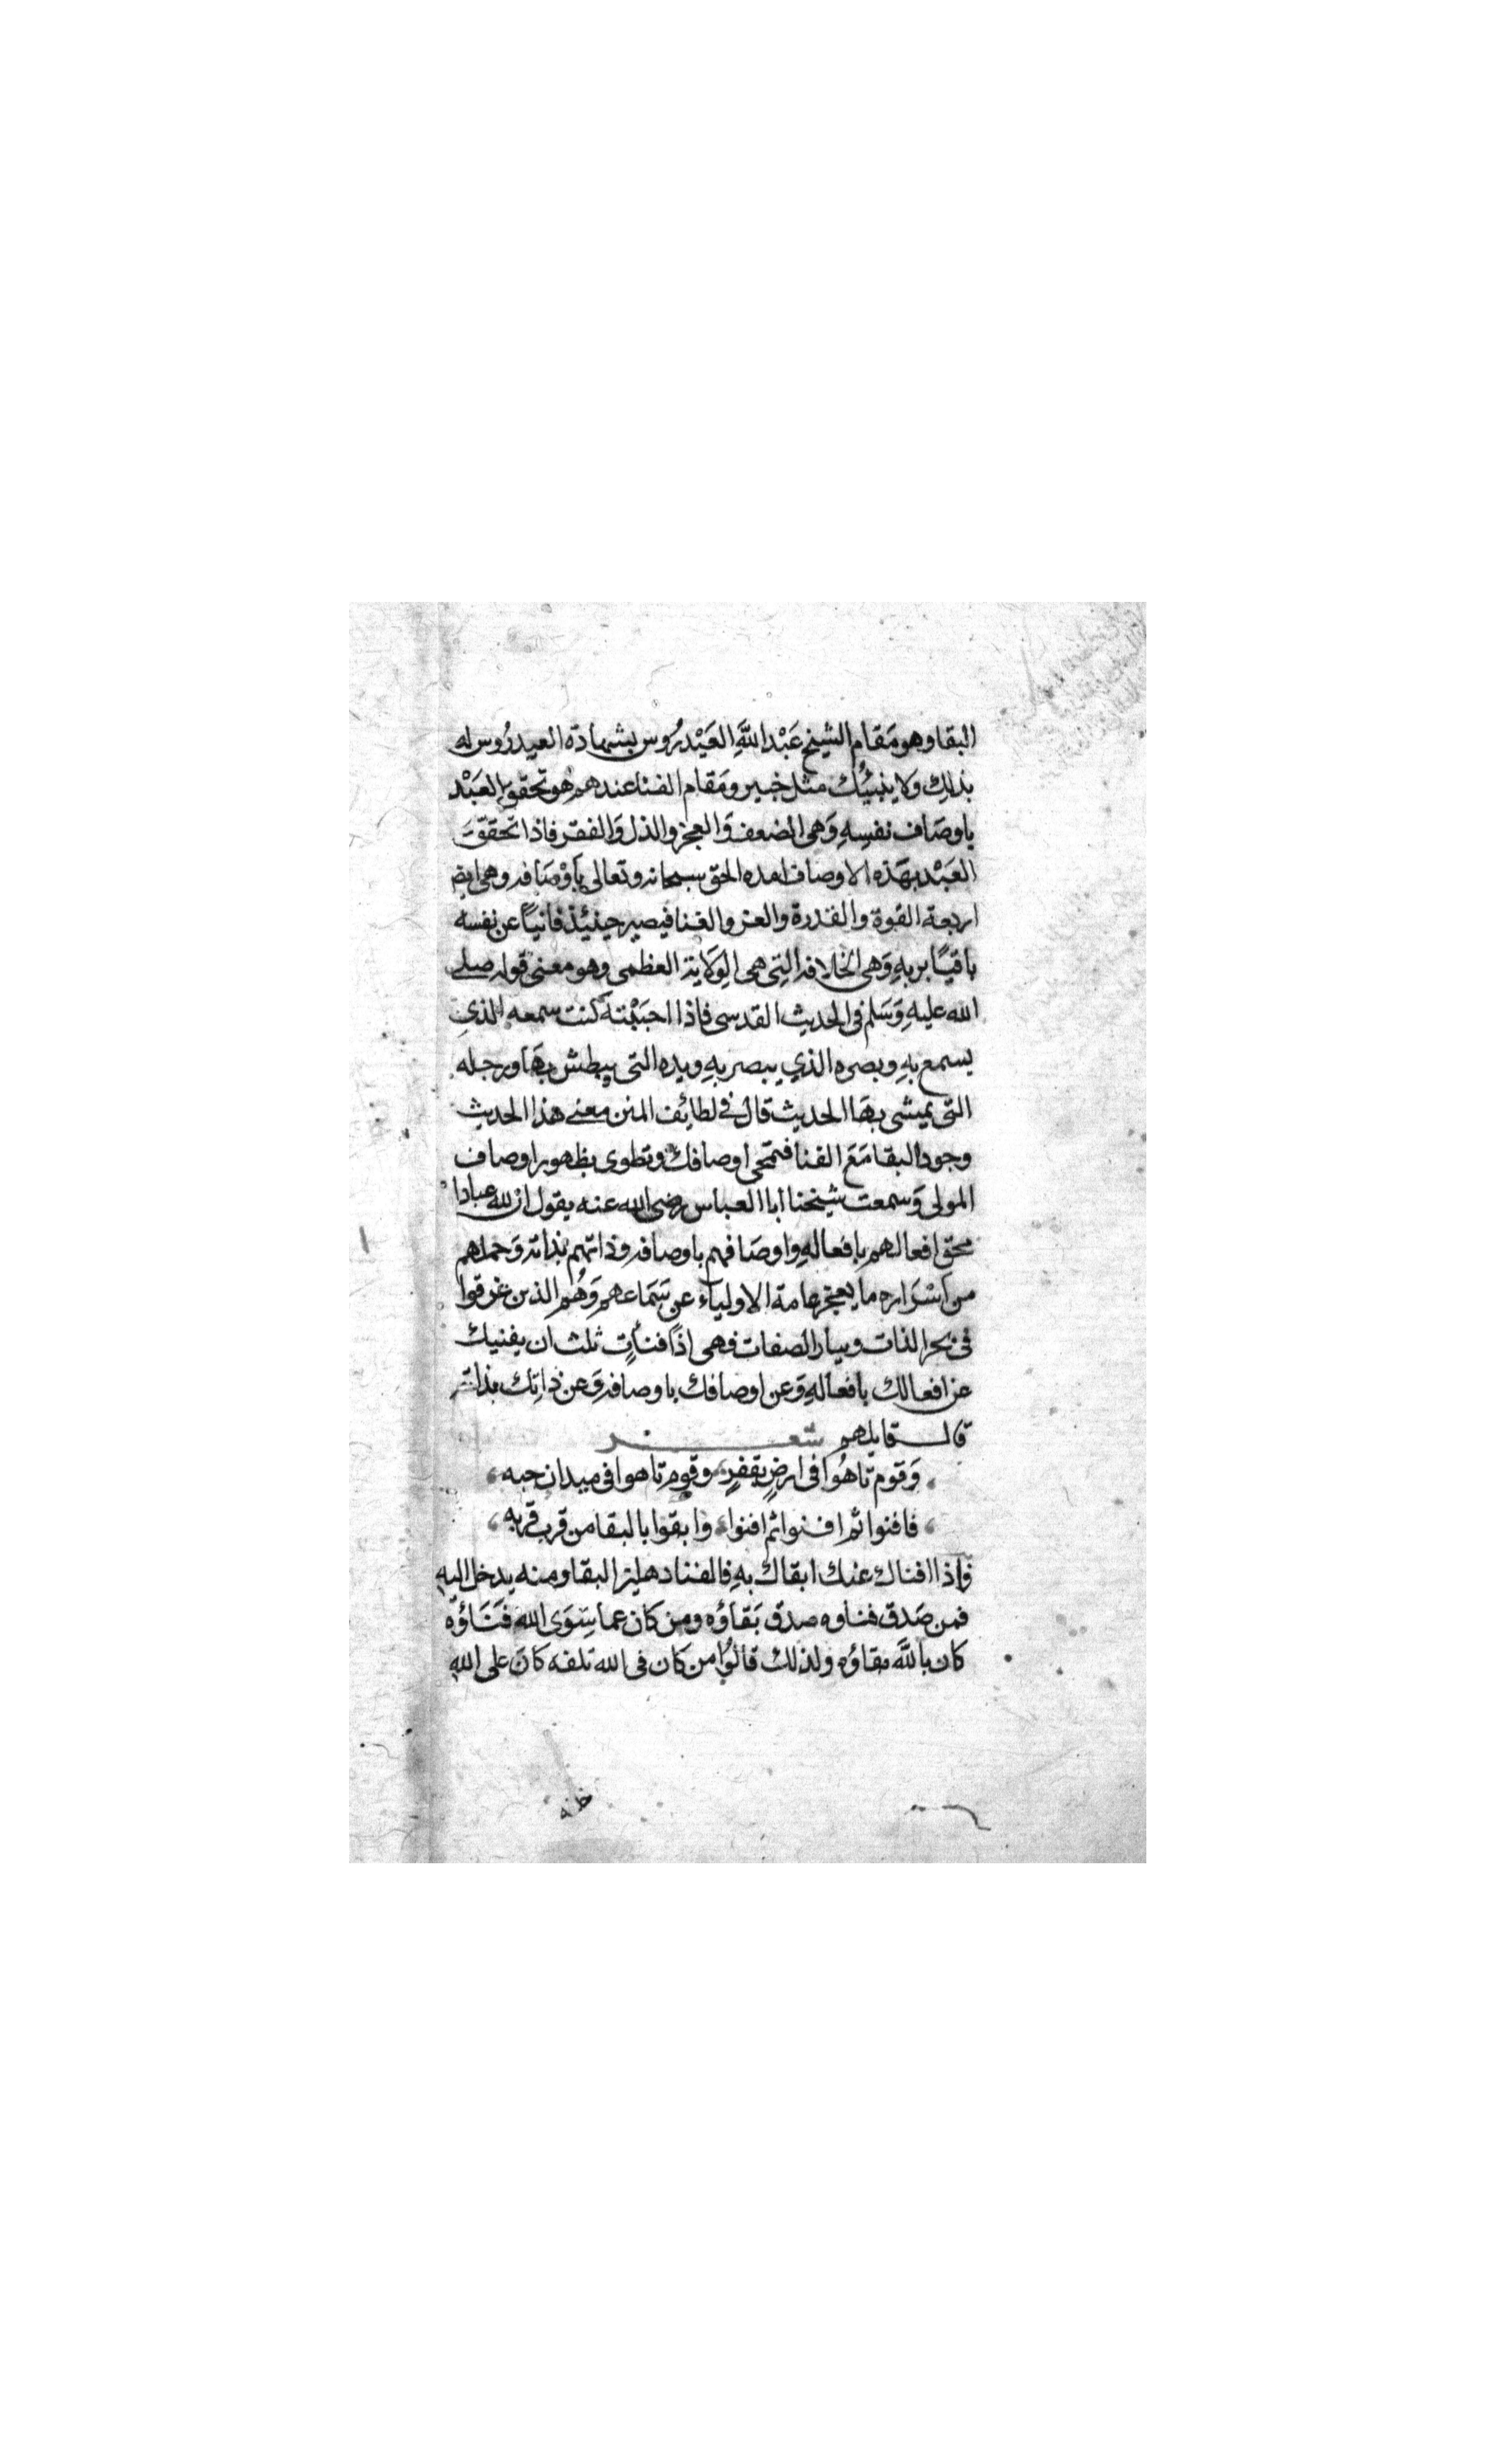 البقا وهو مَقام الشيخ عَبْد اللَّهِ العَيْدرُوس بشهادة العيدرُوس له
بذلك ولا ينبئُك مثل خبير ومَقام الفنا عندهم هو تحقق العَبْد
باوصَاف نفسِهِ وَهى الضعف وَالعجز والذل وَالفقر فاذا تحققَ
العَبْد بهَذه الاوصاف امده الحق سبحانه وتعالى بَاوْصَافه وهى ايض
اربعة القوة والقدرة والعز والغنا فيصير حينئذ فانياً عن نفسه
باقيًا بربهِ وَهى الخلافه التِى هى الوِلَاية العظمى وهو معنى قوله صلى
الله عليهِ وَسَلم فى الحديث القدسى فاذا احبَبْته كنت سمعه الذى
يسمع بهِ وبصره الذي يبصر بهِ ويده التى يبطش بهَا ورجله
التى يمشى بهَا الحديث قال في لطائف المنن معنى هذا الحديث
وجود البقا مَعَ الفنا فتمحى اوصافك وتطوى بظهور اوصاف
المولى وَسمعت شيخنا ابا العباس رضى الله عنه يقول ان لله عبادا
محق افعالهم بافعالهِ واوصَافهم باوصافه وذاتهم بذاته وَحملهم
من اسْرَاره ما يعجز عامة الاولياء عن سَمَاعهم وَهُم الذين غرقوا
فى بحر الذات وبيار الصفات فهى اذًا فنأتٍ ثلث ان يفنيك
عن افعالك بافعالهِ وَعن اوصافك باوصافه وَعن ذاتِك بذاته
قال قايلهم شعر
وَقوم تاهُوا فى ارضٍ بقفرٍ وقوم تاهوا فى ميدان حبه
فافنوا ثم افنوا ثم افنوا وابقوا بالبقا من قرب قربه
فاذا افناك عنك ابقاك بهِ فالفنا دهليز البقا ومنه يدخل اليهِ
فمن صَدق فناوه صدق بَقاؤه ومن كان عما سِوَى الله فَنَاؤه
كان باللَّه بقاؤه ولذلك قالوا من كان فى الله تلفه كانَ على اللهِ